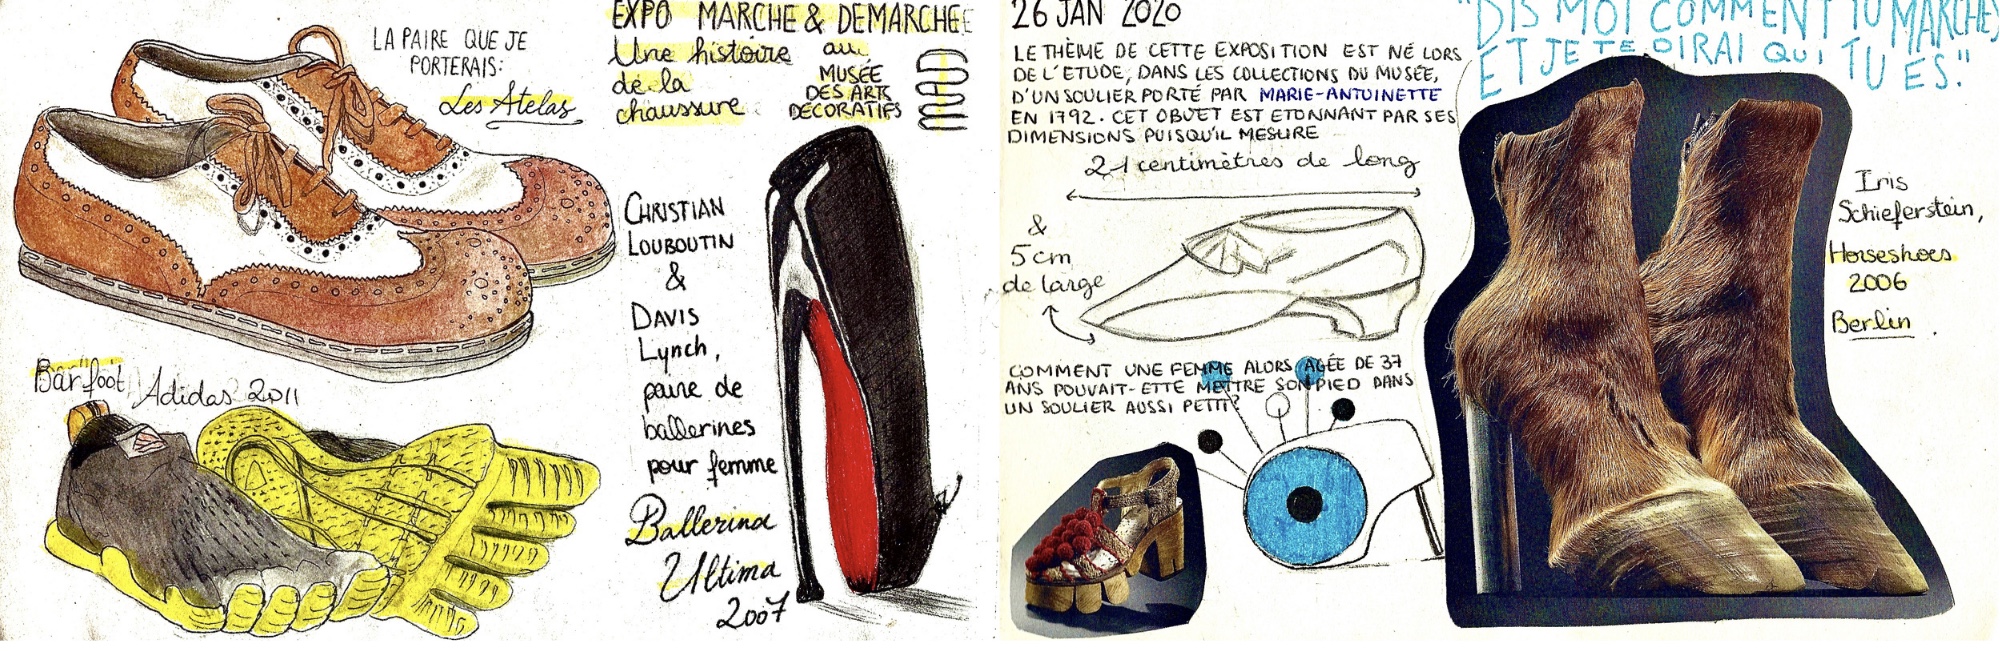 LA PAIRE QUE JE
PORTERAIS:
Les Atelas
Barfoot, Adidas 2011
EXPO MARCHE & DEMARCHE
Une histoire
de la
chaussure
au
MUSÉE
DES ARTS
DÉCORATIFS
MAD
CHRISTIAN
LOUBOUTIN
&
DAVIS
Lynch,
paire de
ballerines
pour femme
Ballerina
Ultima
2007
26 JAN 2020
LE THÈME DE CETTE EXPOSITION EST NÉ LORS
DE L'ETUDE, DANS LES COLLECTIONS DU MUSÉE,
D'UN SOULIER PORTÉ PAR MARIE-ANTOINETTE
EN 1792. CET OBJET EST ETONNANT PAR SES
DIMENSIONS PUISQU'IL MESURE
21 centimètres de long
&
5 cm
de large
COMMENT UNE FEMME ALORS AGÉE DE 37
ANS POUVAIT-ETTE METTRE SON PIED DANS
UN SOULIER AUSSI PETIT?
"DIS MOI COMMENT TU MARCHES
ET JE TE DIRAI QUI TU ES."
Iris
Schieferstein,
Horseshoes
2006
Berlin.